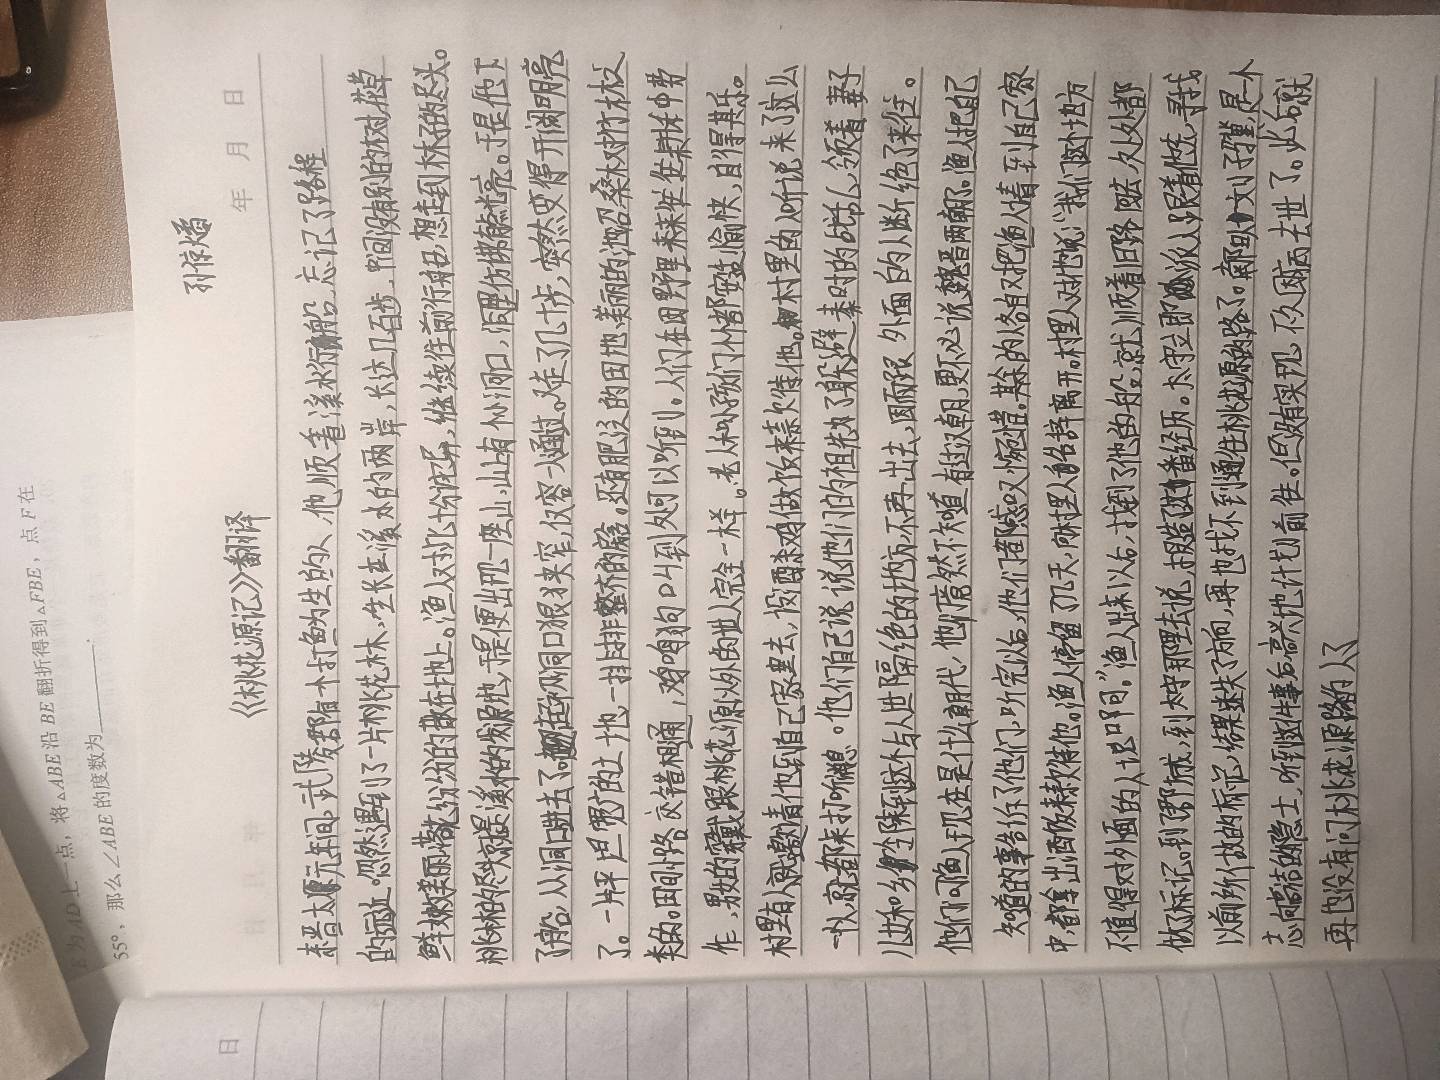 孙惊熠
年 月 日
《桃花源记》翻译
东晋太原元年间,武陵郡有个打鱼为生的人,他顺着溪水行船,忘记了路程
的远近。忽然遇到了一片桃花木,生长在溪水的两岸,长达几百步,中间没有别的树,花草
鲜嫩美丽,落花纷纷的散在地上。渔人对此十分诧异,继续往前行船,想走到林子的尽头。
桃林的尽头就是溪水的发源地,于是便出现一座山,山上有个小洞口,洞里仿佛有点光亮。于是他下
了船,从洞口进去了。起初洞口很狭窄,仅容一人通过。又走了几十步,突然变得开阔明亮
了。一片平坦宽广的土地,一排排整齐的房屋。还有肥沃的田地、美丽的池沼,桑树竹林这
类的。田间小路交错相通,鸡鸣狗叫到处可以听到。人们在田野里来来往往耕种劳
作,男女的穿戴跟桃花源以外的世人完全一样。老人和小孩们个个都安适愉快,自得其乐。
村里有人就邀请他到自己家里去,设酒杀鸡做饭来款待他。村里的人听说来了这么
一人,就都来打听消息。他们自己说他们的祖先为了躲避秦时的战乱,领着妻子
儿女和乡邻来到这个与人世隔绝的地方,不再出去,因而跟外面的人断绝了来往。
他们问渔人现在是什么朝代,他们竟然不知道有过汉朝,更不必说魏晋两朝了。渔人把自己
知道的事告诉了他们,听完以后,他们都感叹惋惜。其余的人各自又把渔人请到自己家
中,都拿出酒饭来款待他。渔人停留了几天,向村里人告辞离开。村里人对他说:“我们这个地方
不值得对外面的人说啊。”渔人出来以后,找到了他的船,就顺着旧路回去,处处都
做了标记。到了郡城,到太守那里去说,报告了这番经历。太守立即派人跟着他去,寻找
以前所做的标记,结果迷失了方向,再也找不到通往桃花源的路了。南阳人刘子骥,是个
志向高洁的隐士,听到这件事后高兴地计划前往。但没有实现,不久因病去世了。此后就
再也没有问桃花源路的人了
日
E为AD上一点,将△ABE沿BE翻折得到△FBE,点F在
55°,那么∠ABE的度数为________.